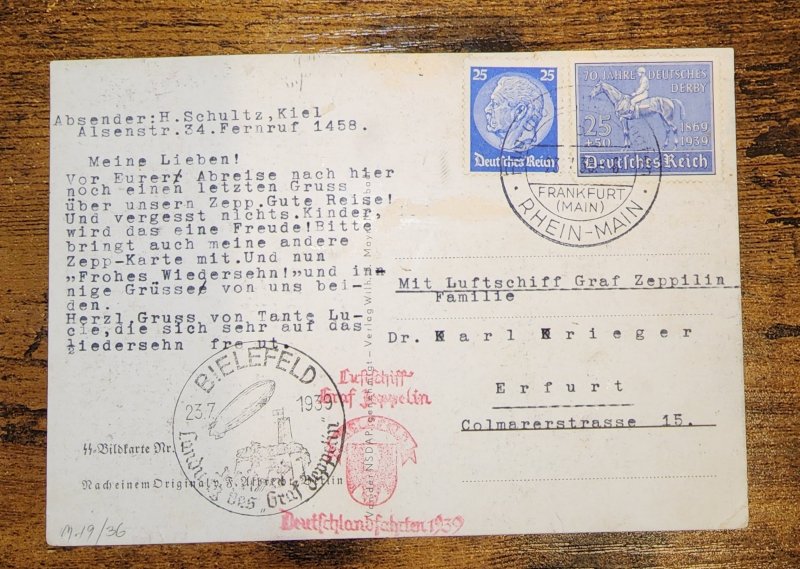 Absender:H.Schultz,Kiel
Alsenstr.34.Fernruf 1458.
Meine Lieben!
Vor Eurer Abreise nach hier
noch einen letzten Gruss
über unsern Zepp.Gute Reise!
Und vergesst nichts.Kinder,
wird das eine Freude!Bitte
bringt auch meine andere
Zepp-Karte mit.Und nun
„Frohes Wiedersehn!"und in
nige Grüsse von uns bei-
den.
Herzl.Gruss von Tante Lu-
cie,die sich sehr auf das
iedersehn freut.
BIELEFELD
23.7. 1939
Landung des „Graf Zeppelin"
SS-Bildkarte Nr.
Nach einem Original v. F. Albrecht, Berlin
M.19/36
25 25
Deutsches Reich
70 JAHRE DEUTSCHES
DERBY
25
+50
1869
1939
Deutsches Reich
FRANKFURT
(MAIN)
RHEIN-MAIN
Mit Luftschiff Graf Zeppilin
Familie
Dr. Karl Krieger
Erfurt
Colmarerstrasse 15.
Luftschiff
Graf Zeppelin
Deutschlandfahrten 1939
Verlag Wilh.
NSDAP